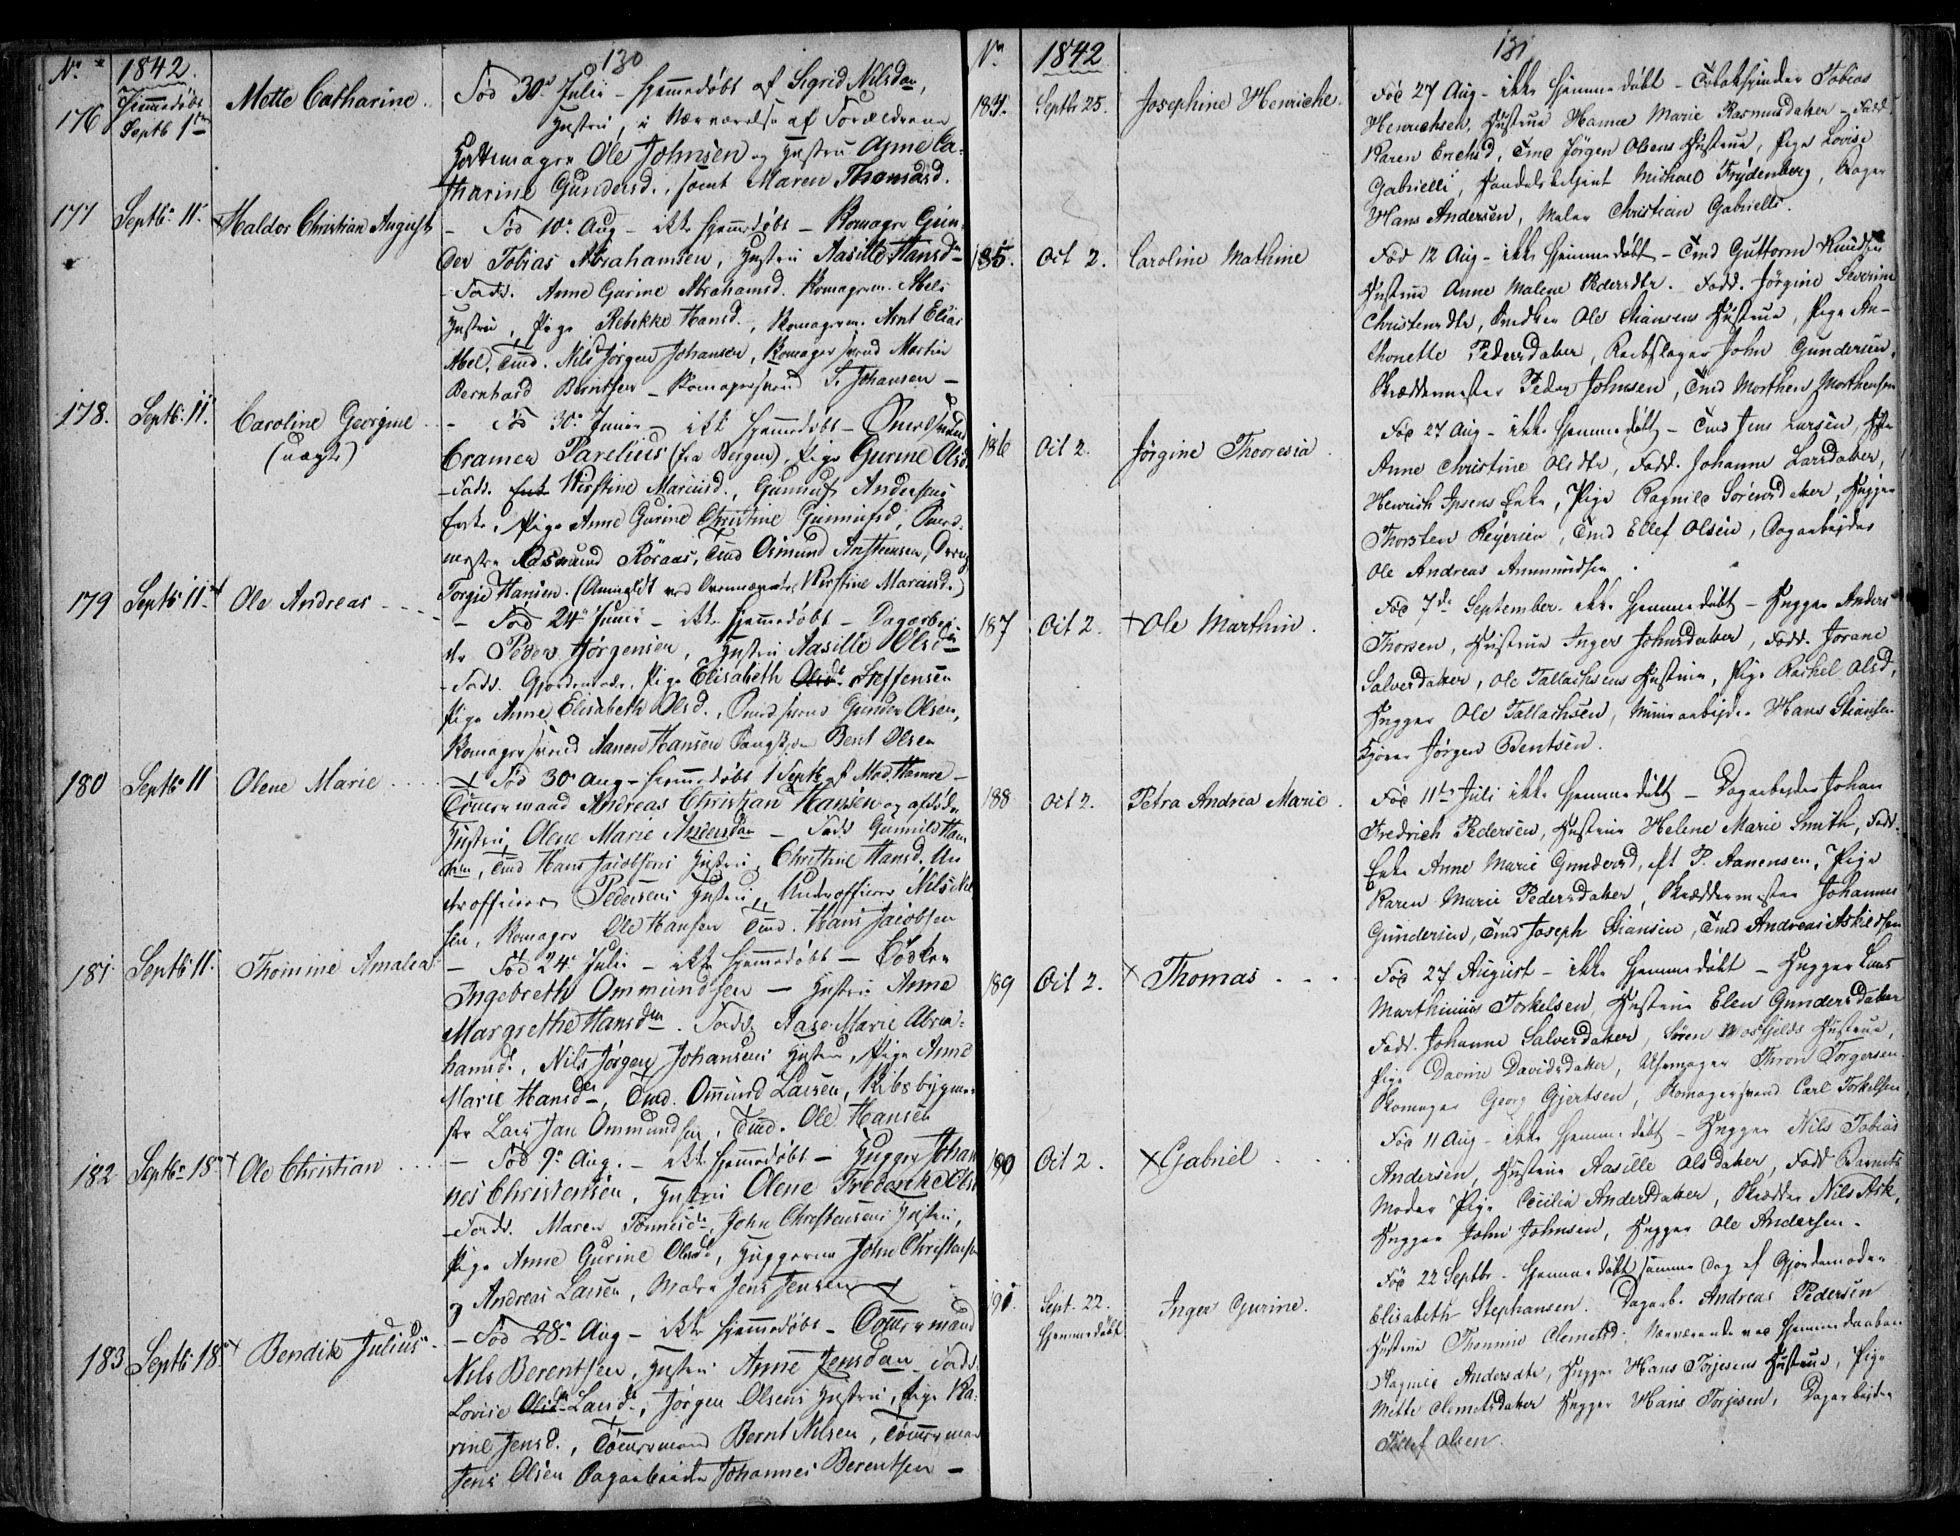 130
No 1842.
176 Hjemmedøbt Septb 1ste Mette Catharine. Fød 30e Julii – hjemmedøbt af Sigrid Nilsdatr,
Hustru, i Nærværelse af Forældrene
Ole Johnsen og Hustru Anne Ca-
tharine Gundersd., samt Maren Thomasd.
177 Septbr 11. Haldor Christian August – Fød 10e Aug – ikke hjemmedøbt – Skomager Gun-
der Tobias Abrahamsen, Hustru Aasille Hansd
– Fadd. Anne Gurine Abrahamsd. Skomagerm. Abels
Hustru, Pige Rebekke Hansd., Skomagerm. Arnt Elias
Abel, Tmd. Nils Jørgen Johansen, Skomagersvend Martin
Bernhard Berntsen – Skomagersvend T. Johansen –
178. Septb. 11. Caroline Georgine (uægte) – Fød 30e Junii – ikke hjemmedøbt – Smedsvend
Cramer Parelius (fra Bergen), Pige Gurine Olsd.
– Fadd. Enke Kirstine Mariusd., Gunnuf Andersens
Enke, Pige Anne Gurine Christine Gunnufsd, Smed-
mester Rasmund Roraas, Tmd Osmund Arnstensen, Dreng
Torgie Hansen. (Anmeldt ved Kirstine Mariusd.)
179 Septb 11te Ole Andreas – Fød 24e Junii – ikke hjemmedøbt – Dagarbej-
der Peder Hjørgensen, Hustru Aasille Olsd
– Fadd. Gjordemoder, Pige Elisabeth Olsdr Steffensen
Pige Anne Elisabeth Olsd., Smedsvend Gunder Olsen,
Skomagersvend Aanen Hansen Bent Olsen
180 Septbr 11 Olene Marie. + Fød 30e Aug – hjemmedøbt 1 Septb af Mad. Hamre –
Tømmermand Andreas Christian Hansen og afdøde
Hustru Olene Marie Andersdtr – Fadd Gunnild Han
sen, Tmd Hans Jacobsens Hustru, Christine Hansd, Un
derofficer Pedersens Hustru, Underofficer Nils
sen, Skomager Ole Hansen Tmd. Hans Jacobsen
181 Septb 11. Thomine Amalia – Fød 24e Julii – ikke hjemmedøbt – Bødker
Ingebreth Ommundsen – Hustru Anne
Margrethe Hansdtr. Fadd. Aase Marie Abra-
hamsd., Nils Jørgen Johansens Hustru, Pige Anne
Marie Hansdr, Tmd. Ommund Larsen, Skibsbygme-
ster Lars Jan Ommundsen, Tmd. Ole Hansen
182 Septbr 18de + Ole Christian – Fød 9e Aug. – ikke hjemmedøbt – Hugger Johan
nes Christensen, Hustru Olene Frederikke Olsd
– Fadd. Maren Tønnesdr, John Christensens Hustru,
Pige Anne Gurine Olsdr, Huggerne John Christensen
og Andreas Larsen, Maler Jens Jensen
183 Septb 18 + Bendik Julius – Fød 28e Aug – ikke hjemmedøbt – Tømmermand
Nils Berentsen, Hustru Anne Jensdatr – Fadd.
Lovise Olsdr Land, Jørgen Olsens Hustru, Pige Ka-
rine Jensd., Tømmermand Bernt Nilsen, Tømmermand
Jens Olsen Dagarbeider Johannes Berentsen –
131
No 1842
184. Septbr 25. Josephine Henriche. Fød 27 Aug – ikke hjemmedøbt – Tobakspinder Tobias
Henrichsen, Hustrue Hanne Marie Rasmusdatter – Fadd.
Karen Erichsd, Tmd Jørgen Olsens Hustrue, Pige Lovise
Gabrielli, Handelsbetjent Michael Frydenberg, Bager
Hans Andersen, Maler Christian Gabrielli.
185. Oct 2. Caroline Mathine Fød 12 Aug – ikke hjemmedøbt – Tmd Guttorm Knudsen
Hustrue Anne Malene Pedersdtr – Fadd. Jørgine Severine
Christensdtr, Snedker Ole Stiansens Hustrue, Pige An-
thonette Pedersdatter, Rebslager John Gundersen,
Skreddermester Peder Johnsen, Tmd Morthen Morthensen
186 Oct 2. Jørgine Thorresia. Fød 27 Aug – ikke hjemmedøbt – Tmd Jens Larsen, Hstr
Anne Christine Olsdtr, Fadd. Johanne Larsdatter,
Henrich Ipsens Enke, Pige Ragnild Sørensdatter, Hugger
Thorsten Reyersen, Tmd Ellef Olsen, Dagarbejder
Ole Andreas Ammundsen.
187 Oct 2. + Ole Marthin. Fød 7de September – ikke hjemmedøbt – Hugger Anders
Thorsen, Hustrue Inger Johnsdatter, Fadd. Jorane
Salvesdatter, Ole Tallachsens Hustrue, Pige Rachel Olsd,
Hugger Ole Tallachsen, Minearbejder Hans Stiansen
Jørgen Bentsen.
188 Oct 2. Petra Andrea Marie. Fød 11te Juli ikke hjemmedøbt – Dagarbejder Johan
Fredrich Pedersen, Hustrue Helene Marie Smith, Fadd.
Enke Anne Marie Gundersd, P. Aanensen, Pige
Karen Marie Pedersdatter, Skreddermester Johannes
Gundersen, Tmd Joseph Stiansen, Tmd Andreas Askildsen
189 Oct 2. + Thomas Fød 27 August – ikke hjemmedøbt – Hugger Lars
Marthinius Torkelsen, Hustrue Elen Gundersdatter
Fadd. Johanne Salvesdatter, Søren Mosfjelds Hustrue,
Pige Davine Davidsdatter, Uhrmager Thron Torgersen
Skomager Georg Gjertsen, Skomagersvend Carl Torkelsen
190 Oct 2. + Gabriel Fød 11 Aug – ikke hjemmedøbt – Hugger Nils Tobias
Andersen, Hustrue Aasille Olsdatter, Fadd. Barnets
Moder Pige Cecilia Andersdatter, Skredder Nils Ask,
Hugger John Johnsen, Hugger Ole Andersen.
191. Sept. 22. Hjemmedøbt Inger Gurine. Fød 22 Septbr. hjemmedøbt samme Dag af Gjordemoder
Elisabeth Stephansen. Dagarb. Andreas Pedersen
Hustrue Thomine Clemetsd. Nærværende ved Hjemmedaaben
Ragnild Andersdtr, Hugger Hans Torjesens Hustrue, Pige
Mette Clemetsdatter Hugger Hans Torjesen, Dagarbejder
Tellef Olsen.